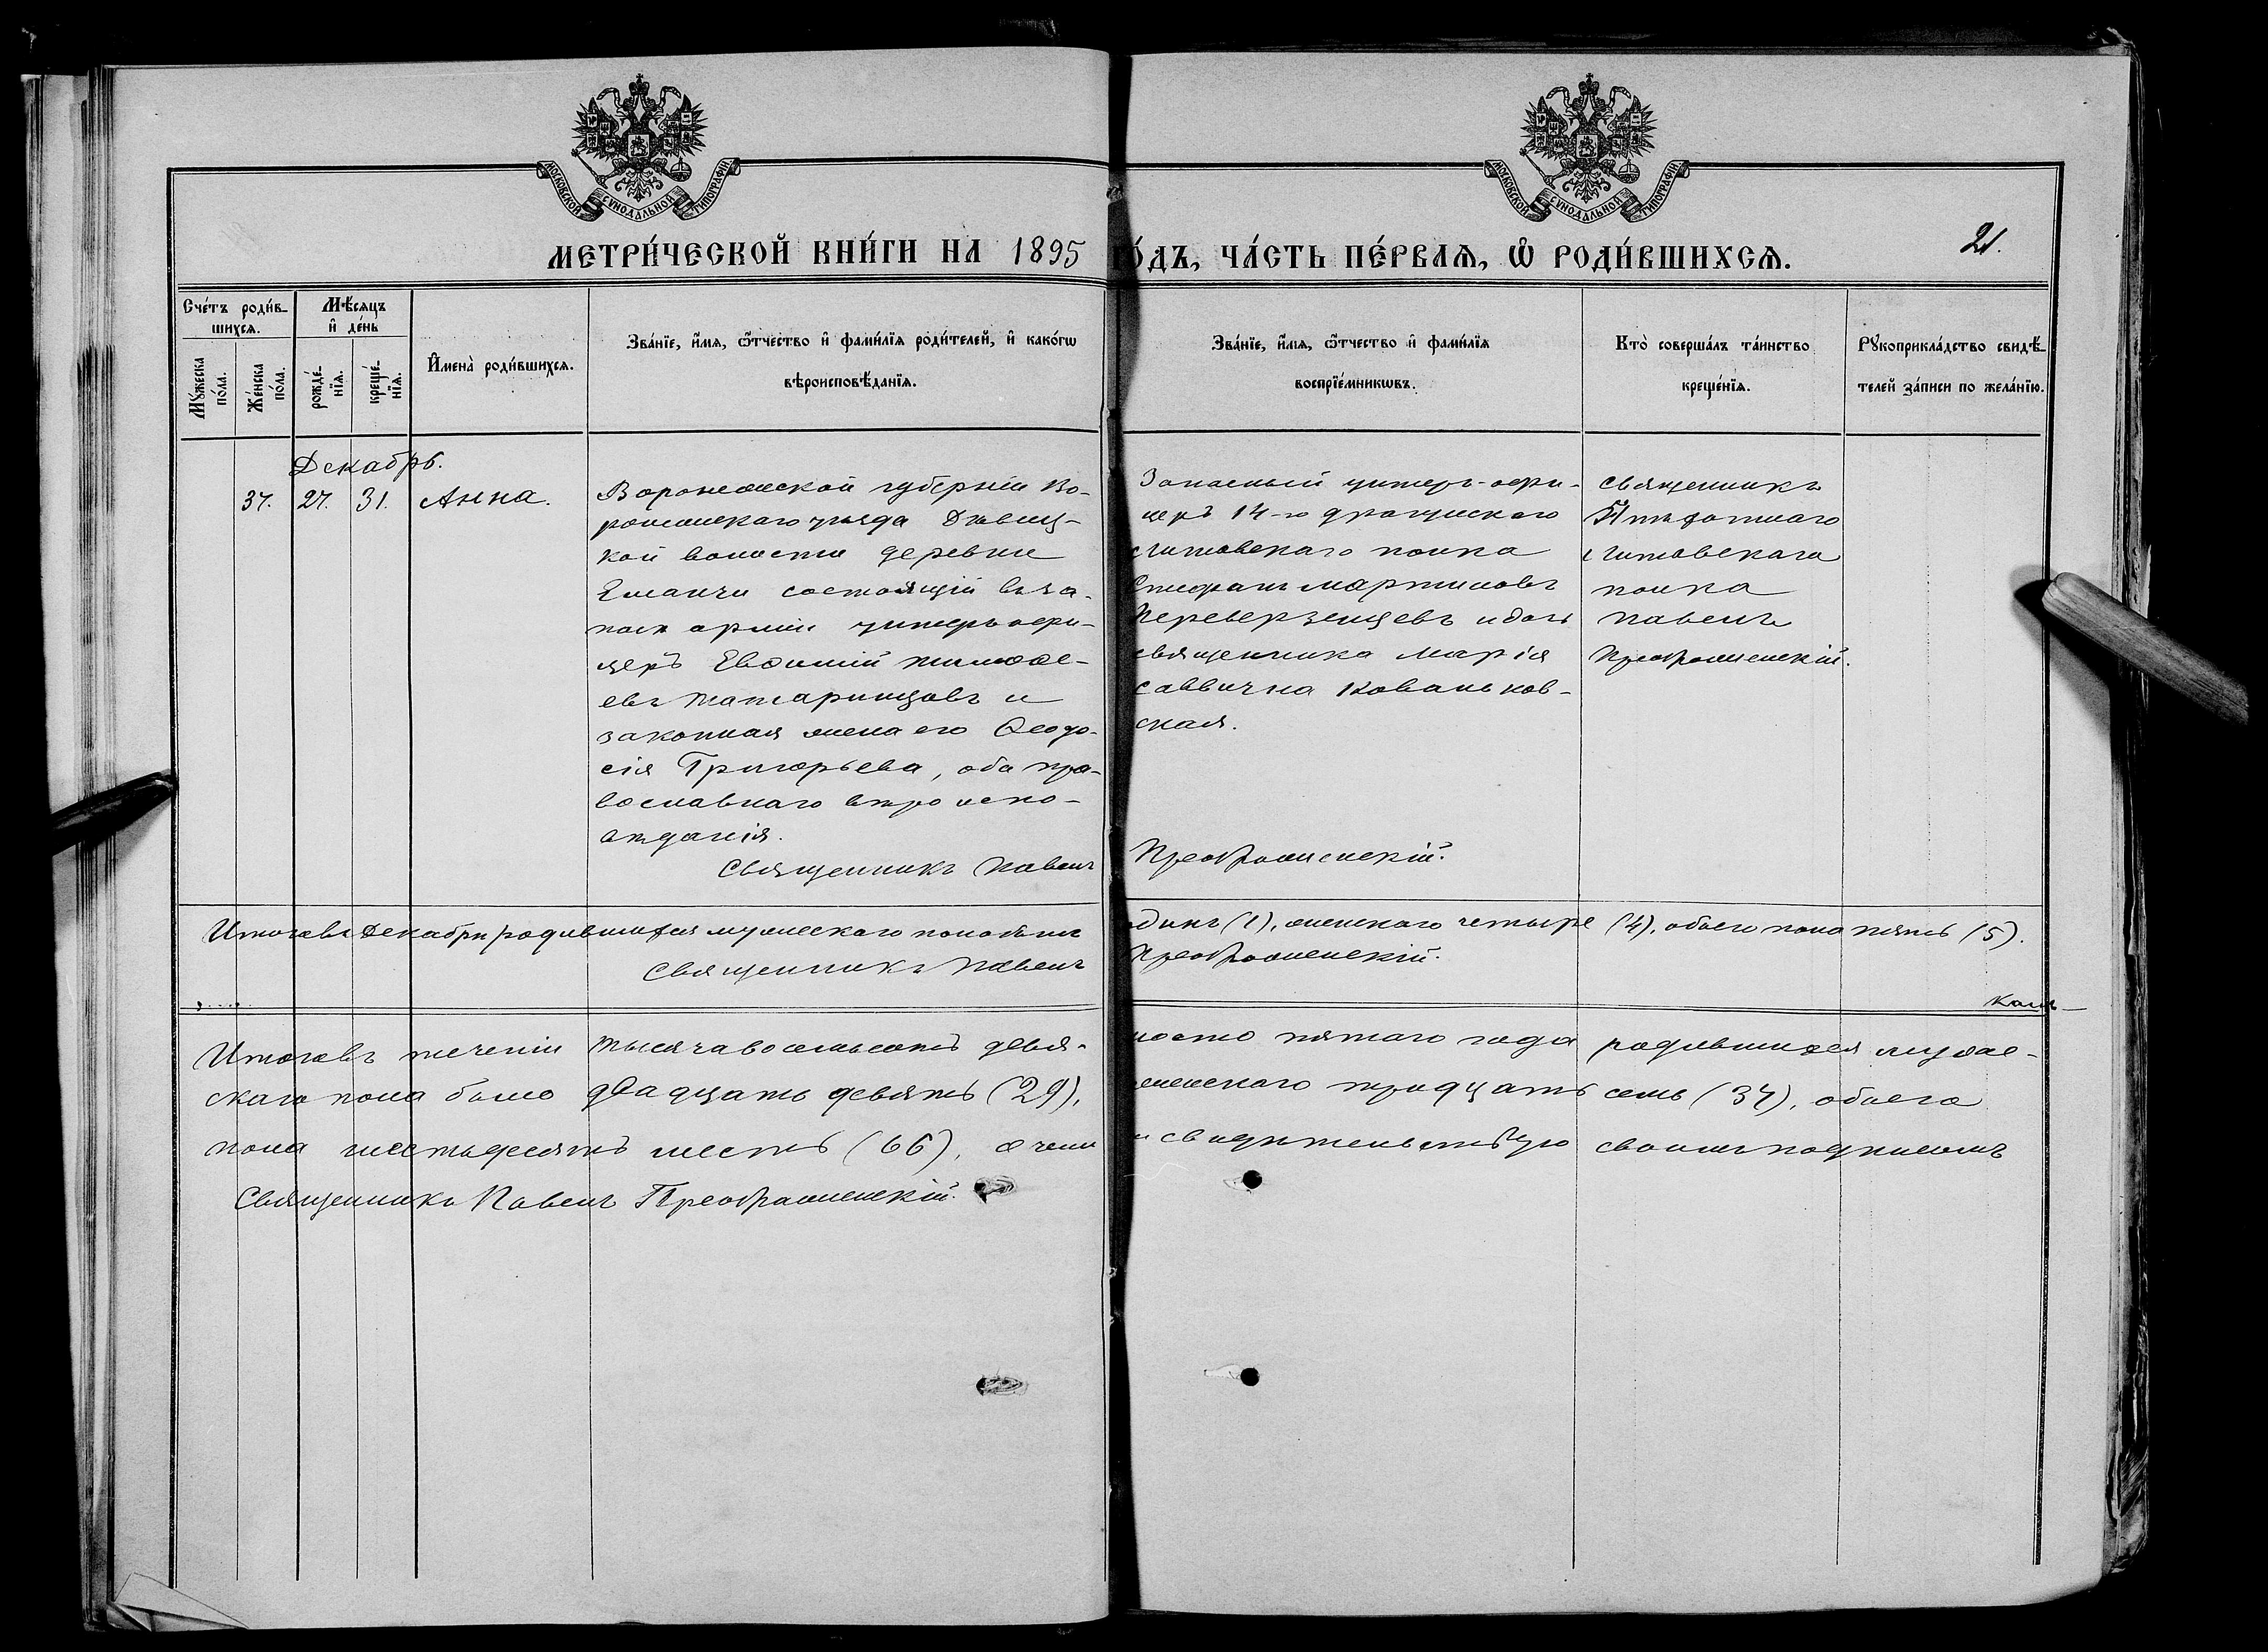 МОСКОВСКОЙ СѴНОДАЛЬНОЙ ТИПОГРАФІИ
МОСКОВСКОЙ СѴНОДАЛЬНОЙ ТИПОГРАФІИ
МЕТРИ́ЧЕСКОЙ КНИ́ГИ НА 1895 ГО́ДЪ, ЧА́СТЬ ПЕ́РВАѦ, Ѽ РОДИ́ВШИХСѦ.
21.
Сче́тъ роди́в-
шихсѧ.
Мꙋ́жеска
по́ла.
Же́нска
по́ла.
Мѣ́сѧцъ
и҆ де́нь
рожде́-
нїѧ.
креще́-
нїѧ.
И҆мена̀ роди́вшихсѧ.
Зва́нїе, и҆́мѧ, ѻ҆́тчество и҆ фами́лїѧ роди́телей, и҆ како́гѡ
вѣроисповѣ́данїѧ.
Зва́нїе, и҆́мѧ, ѻ҆́тчество и҆ фами́лїѧ
воспрїе́мникѡвъ.
Кто̀ соверша́лъ та́инство
креще́нїѧ.
Рꙋкоприкла́дство свидѣ́-
телей за́писи по жела́нїю.
Декабрь.
37. 27. 31. Анна.
Воронежской губерніи Во-
ронежскаго уѣзда Дѣвиц-
кой волости деревни
Еманчи состоящій въ за-
пасѣ арміи унтеръ-офи-
церъ Евѳимій Тимоѳе-
евъ Татаринцовъ и
законная жена его Ѳеодо-
сія Григорьева, оба пра-
вославнаго вѣроиспо-
вѣданія.
Священникъ Павелъ Преображенскій.
Запасный унтеръ-офи-
церъ 14-го драгунскаго
Литовскаго полка
Стефанъ Мартиновъ
Переверзенцевъ и дочь
священника Марія
Саввична Ковальков-
ская.
Священникъ
Пѣхотнаго
Литовскаго
полка
Павелъ
Преображенскій.
Итогъ въ Декабрѣ родившихся мужескаго пола былъ одинъ (1), женскаго четыре (4), обоего пола пять (5).
Священникъ Павелъ Преображенскій.
Итого въ теченіи тысяча восемьсотъ девяносто пятаго года родившихся муже-
скаго пола было двадцать девять (29), женскаго тридцать семь (37), обоего
пола шестьдесятъ шесть (66), о чемъ и свидѣтельствую своимъ подписомъ
Священникъ Павелъ Преображенскій.